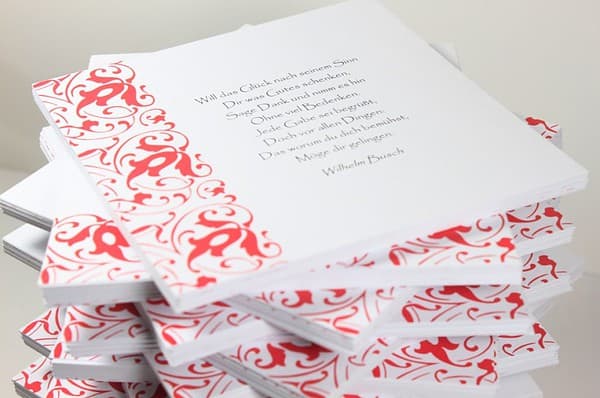 Will das Glück nach seinem Sinn
Dir was Gutes schenken,
Sage Dank und nimm es hin
Ohne viel Bedenken.
Jede Gabe sei begrüßt,
Doch vor allen Dingen:
Das worum du dich bemühst,
Möge dir gelingen.
Wilhelm Busch